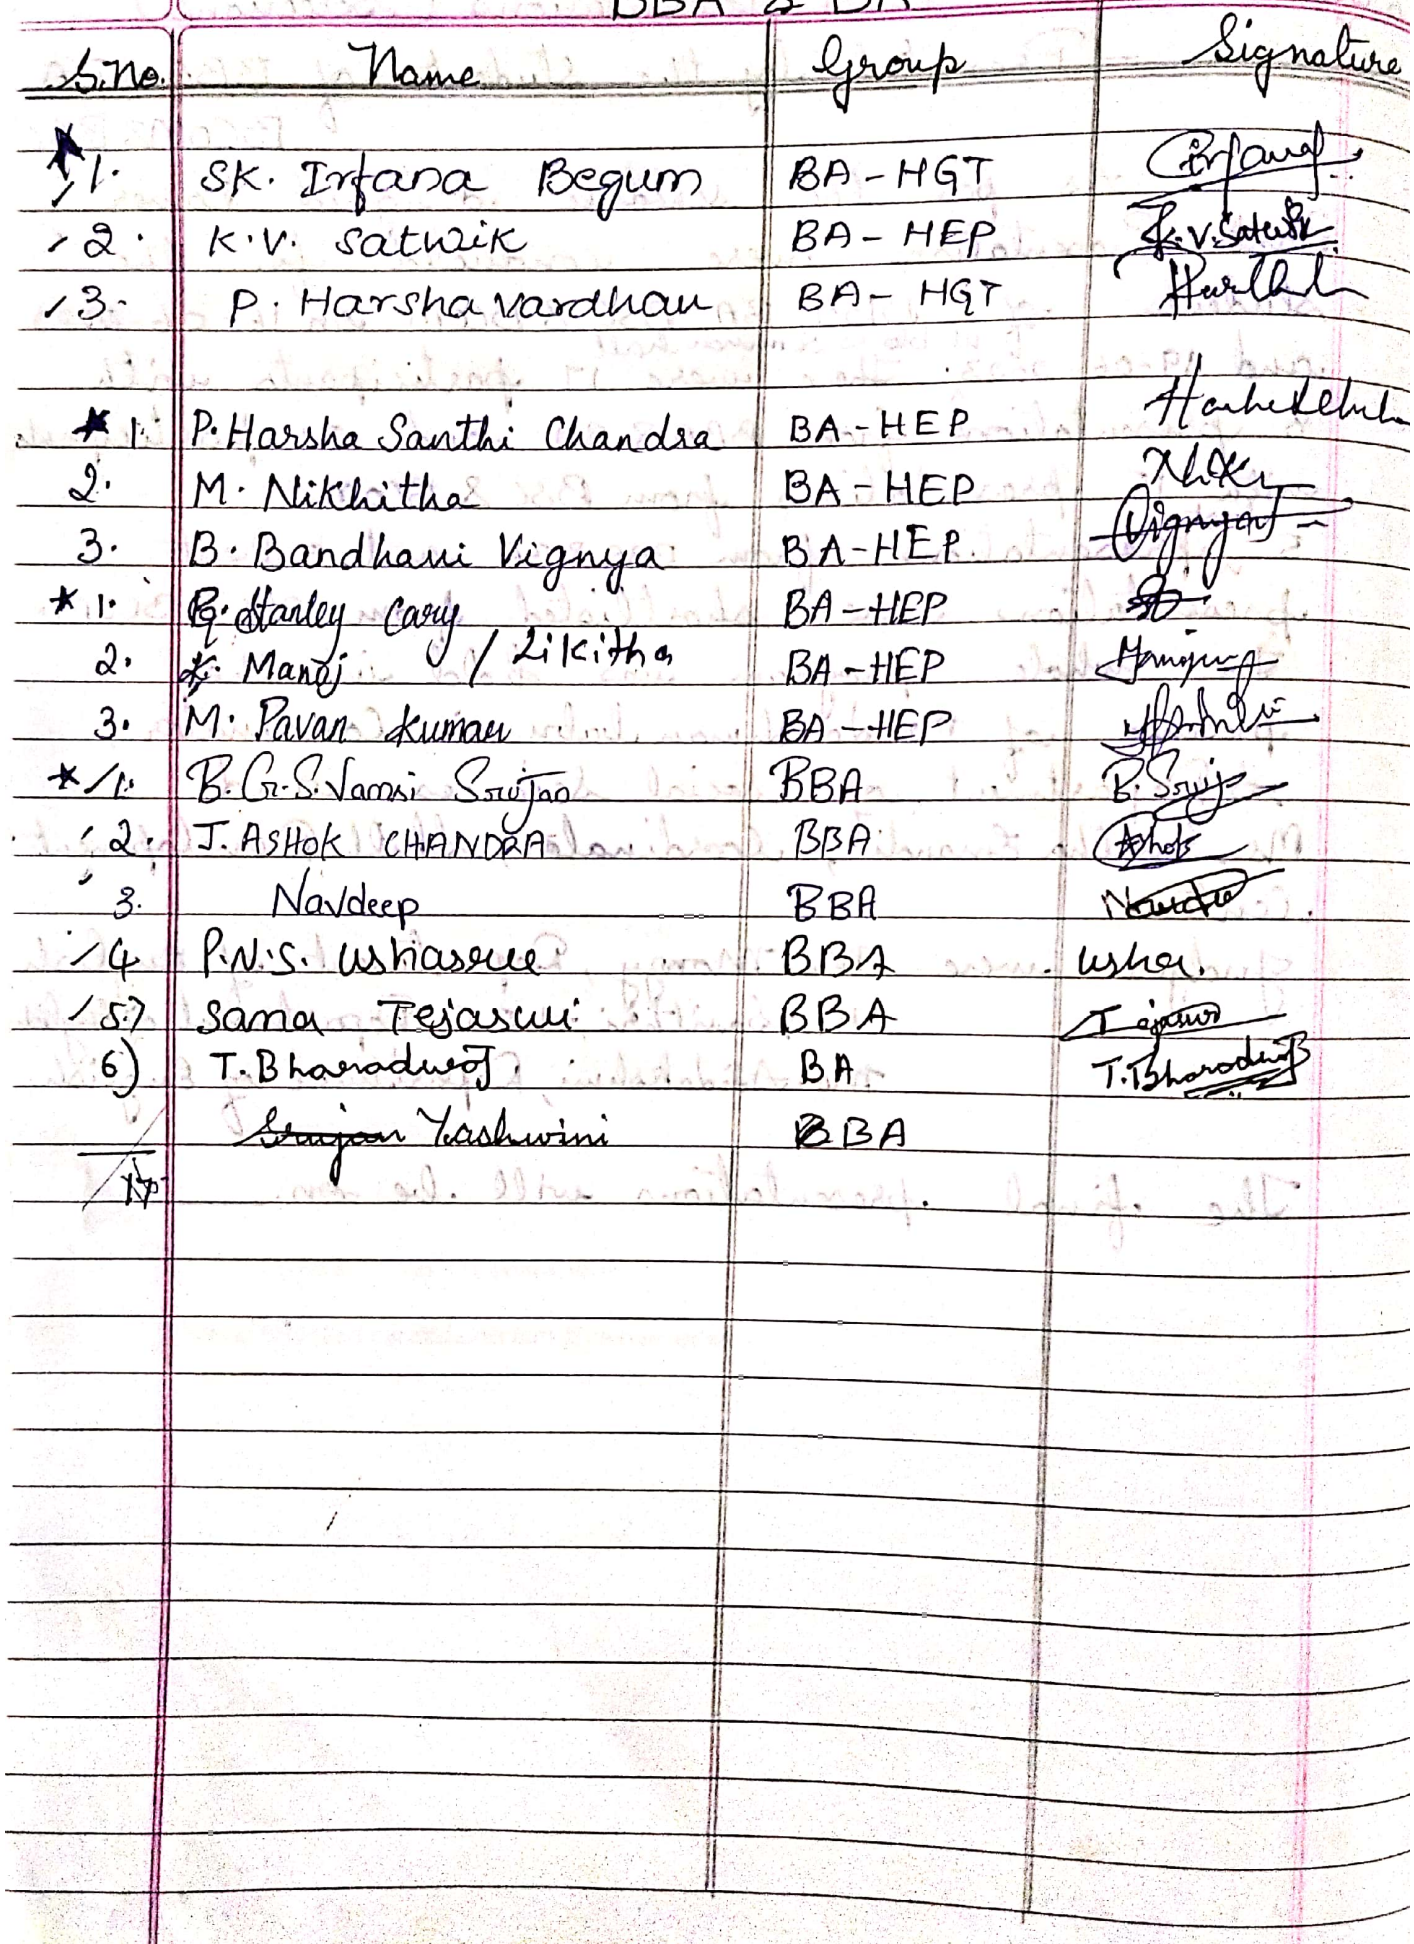 BBA & BA
S.No. Name Group Signature
1. SK. Irfana Begum BA-HGT Irfana
2. K.V. Satwik BA-HEP K.V.Satwik
3. P. Harsha vardhan BA-HGT
1. P. Harsha Santhi Chandra BA-HEP
2. M. Nikhitha BA-HEP
3. B. Bandhavi Vignya BA-HEP Vignya
1. Stanley Cary BA-HEP
2. Manoj / Likitha BA-HEP
3. M. Pavan Kumar BA-HEP
1. B.G.S.Vamsi Srujan BBA B.Sruj
2. J. ASHOK CHANDRA BBA Ashok
3. Navdeep BBA
4 P.N.S. Ushasree BBA usha.
5.) Sana Tejaswi BBA Tejaswi
6) T. Bharadwaj BA T.Bharadwaj
Srujan Yashwini BBA
17